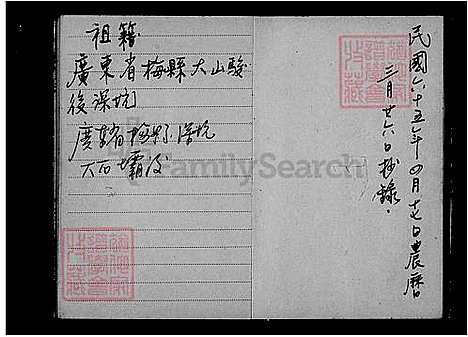 民國六十五年四月十七日農曆
三月廿六日抄錄.
祖籍
廣東省梅縣大山駿
後深坑
廣東省梅縣深坑
大石壩後
FamilySearch